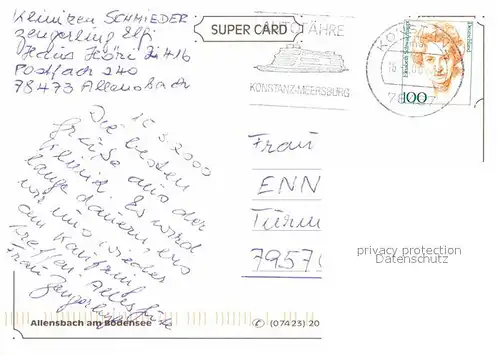 Kliniken SCHMIEDER
Zengerling Elfi
Haus Höri Zi 416
Postfach 240
78473 Allensbach
SUPER CARD
AUTOFÄHRE
KONSTANZ-MEERSBURG
Deutschland
100
16.3.2000
Die besten
Grüße aus der
Klinik. Es wird
lange dauern, bis
wir uns wieder
am Kaufring
treffen. Alles Gute
Frau Zengerling
Frau
ENN
Turm
7957
privacy protection
Datenschutz
Allensbach am Bodensee
(07423) 20